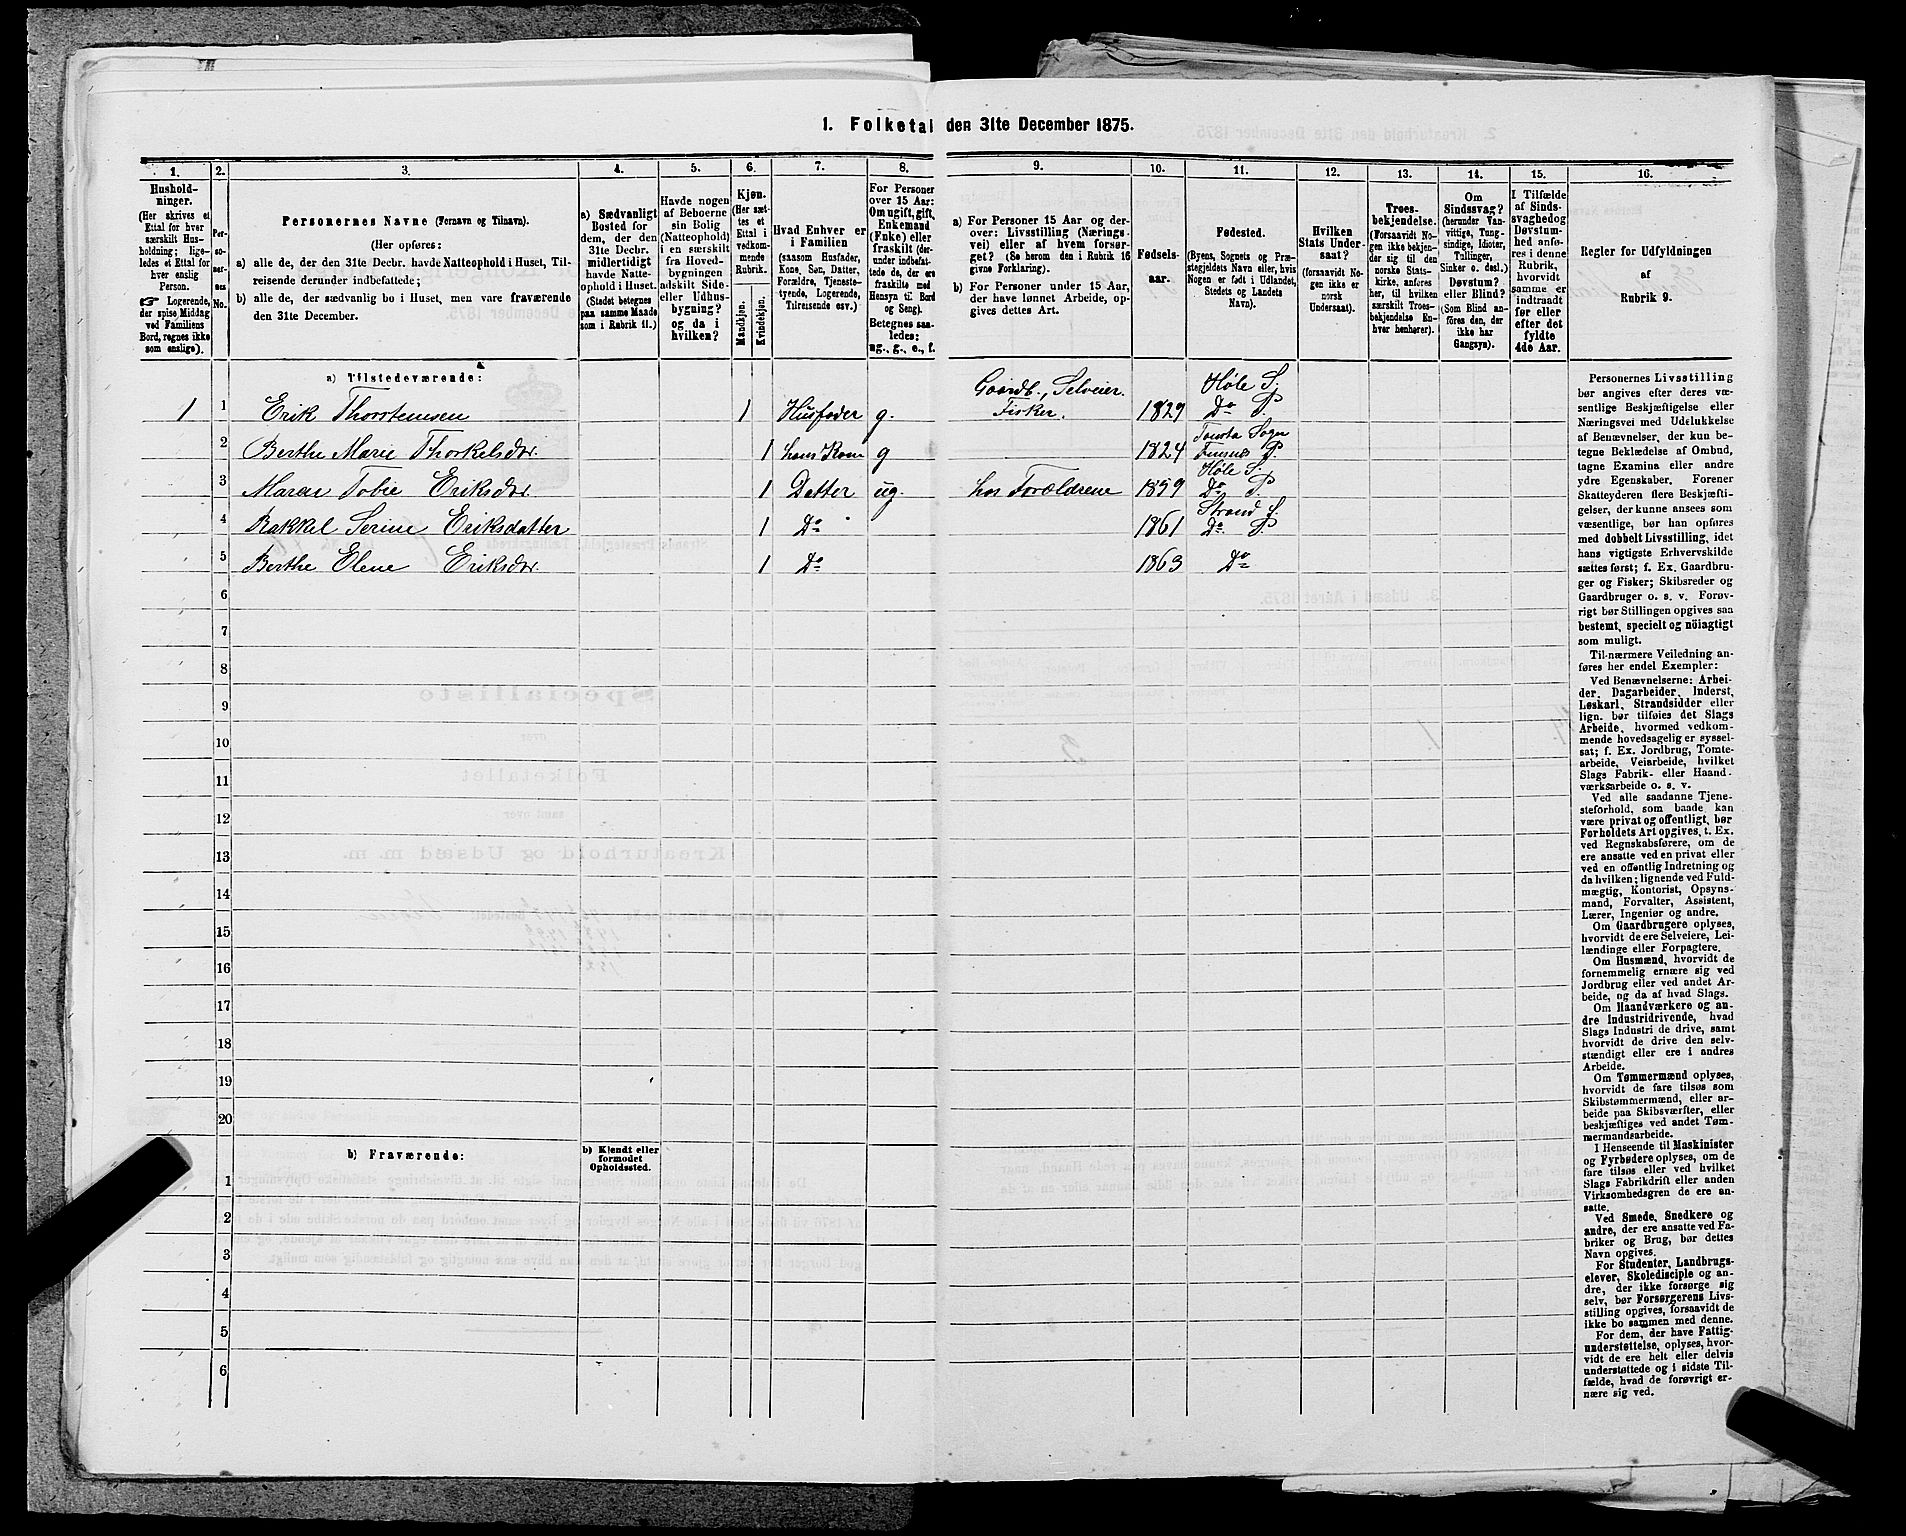 1. Folketal den 31te December 1875.
1.
Hushold-
ninger.
(Her skrives et
Ettal for hver
særskilt Hus-
holdning; lige-
ledes et Ettal for
hver enslig
Person.
☞ Logerende,
der spise Middag
ved Familiens
Bord, regnes ikke
som enslige).
2.
Per-
so-
ner-
nes
No.
3.
Personernes Navne (Fornavn og Tilnavn).
(Her opføres:
a) alle de, der den 31te Decbr. havde Natteophold i Huset, Til-
reisende derunder indbefattede;
b) alle de, der sædvanlig bo i Huset, men vare fraværende
den 31te December.
4.
a) Sædvanligt
Bosted for
dem, der den
31te Decbr.
midlertidigt
havde Natte-
ophold i Huset.
(Stedet betegnes
paa samme Maade
som i Rubrik 11.)
5.
Havde nogen
af Beboerne
sin Bolig
(Natteophold)
i en særskilt
fra Hoved-
bygningen
adskilt Side-
eller Udhus-
bygning?
og da i
hvilken?
6.
Kjøn.
(Her sæt-
tes et
Ettal i
vedkom-
mende
Rubrik.
Mandkjøn.
Kvindekjøn.
7.
Hvad Enhver er
i Familien
(saasom Husfader,
Kone, Søn, Datter,
Forældre, Tjeneste-
tyende, Logerende,
Tilreisende osv.)
8.
For Personer
over 15 Aar:
Om ugift, gift,
Enkemand
(Enke) eller
fraskilt (der-
under indbefat-
tede de, der ere
fraskilte med
Hensyn til Bord
og Seng).
Betegnes saa-
ledes:
ug., g., e., f.
9.
a) For Personer 15 Aar og der-
over: Livsstilling (Nærings-
vei) eller af hvem forsør-
get? (Se herom den i Rubrik 16
givne Forklaring).
b) For Personer under 15 Aar,
der have lønnet Arbeide, op-
gives dettes Art.
10.
Fødsels-
aar.
11.
Fødested.
(Byens, Sognets og Præ-
stegjeldets Navn eller, hvis
Nogen er født i Udlandet,
Stedets og Landets
Navn).
12.
Hvilken
Stats Under-
saat?
(forsaavidt No-
gen ikke er
norsk
Undersaat).
13.
Troes-
bekjendelse.
(Forsaavidt No-
gen ikke bekjen-
der sig til den
norske Stats-
kirke, anføres
her, til hvilken
særskilt Troes-
bekjendelse En-
hver henhører).
14.
Om
Sindssvag?
(herunder Van-
vittige, Tung-
sindige, Idioter,
Tullinger,
Sinker o. desl.)
Døvstum?
eller Blind?
(Som Blind an-
føres den, der
ikke har
Gangsyn).
15.
I Tilfælde
af Sinds-
svaghed og
Døvstum-
hed anfø-
res i denne
Rubrik,
hvorvidt
samme er
indtraadt
før eller
efter det
fyldte
4de Aar.
16.
Regler for Udfyldningen
af
Rubrik 9.
a) Tilstedeværende:
1 1 Erik Thorstensen 1 Husfader g. Gaardb., Selveier. Fisker. 1829 Høle S. Do P.
2 Berthe Marie Thorkelsdr. 1 hans Kone g 1824 Sogn P.
3 Maren Tobie Eriksdr. 1 Datter ug. hos Forældrene 1859 Høle S. Do P.
4 Rakkel Serine Eriksdatter 1 Do 1861 Strand S. Do P.
5 Berthe Elene Eriksdr. 1 Do 1863 Do
6
7
8
9
10
11
12
13
14
15
16
17
18
19
20
b) Fraværende:
b) Kjendt eller
formodet
Opholdssted.
1
2
3
4
5
6
Personernes Livsstilling
bør angives efter deres væ-
sentlige Beskjæftigelse eller
Næringsvei med Udelukkelse
af Benævnelser, der kun be-
tegne Beklædelse af Ombud,
tagne Examina eller andre
ydre Egenskaber. Forener
Skatteyderen flere Beskjæfti-
gelser, der kunne ansees som
væsentlige, bør han opføres
med dobbelt Livsstilling, idet
hans vigtigste Erhvervskilde
sættes først; f. Ex. Gaardbru-
ger og Fisker; Skibsreder og
Gaardbruger o. s. v. Forøv-
rigt bør Stillingen opgives saa
bestemt, specielt og nøiagtigt
som muligt.
Til nærmere Veiledning an-
føres her endel Exempler:
Ved Benævnelserne: Arbei-
der, Dagarbeider, Inderst,
Løskarl, Strandsidder eller
lign. bør tilføies det Slags
Arbeide, hvormed vedkom-
mende hovedsagelig er syssel-
sat; f. Ex. Jordbrug, Tomte-
arbeide, Veiarbeide, hvilket
Slags Fabrik- eller Haand-
værksarbeide o. s. v.
Ved alle saadanne Tjene-
steforhold, som baade kan
være privat og offentligt, bør
Forholdets Art opgives, t. Ex.
ved Regnskabsførere, om de
ere ansatte ved en privat eller
ved en offentlig Indretning og
da hvilken; lignende ved Fuld-
mægtig, Kontorist, Opsyns-
mand, Forvalter, Assistent,
Lærer, Ingeniør og andre.
Om Gaardbrugere oplyses,
hvorvidt de ere Selveiere, Lei-
lændinge eller Forpagtere.
Om Husmænd, hvorvidt de
fornemmelig ernære sig ved
Jordbrug eller ved andet Ar-
beide, og da af hvad Slags.
Om Haandværkere og an-
dre Industridrivende, hvad
Slags Industri de drive, samt
hvorvidt de drive den selv-
stændigt eller ere i andres
Arbeide.
Om Tømmermænd oplyses,
hvorvidt de fare tilsøs som
Skibstømmermænd, eller ar-
beide paa Skibsværfter, eller
beskjæftiges ved andet Tøm-
mermandsarbeide.
I Henseende til Maskinister
og Fyrbødere oplyses, om de
fare tilsøs eller ved hvilket
Slags Fabrikdrift eller anden
Virksomhedsgren de ere an-
satte.
Ved Smede, Snedkere og
andre, der ere ansatte ved Fa-
briker og Brug, bør dettes
Navn opgives.
For Studenter, Landbrugs-
elever, Skoledisciple og an-
dre, der ikke forsørge sig
selv, bør Forsørgerens Livs-
stilling opgives, forsaavidt de
ikke bo sammen med denne.
For dem, der have Fattig-
understøttelse, oplyses, hvor-
vidt de ere helt eller delvis
understøttede og i sidste Til-
fælde, hvad de forøvrigt er-
nære sig ved.